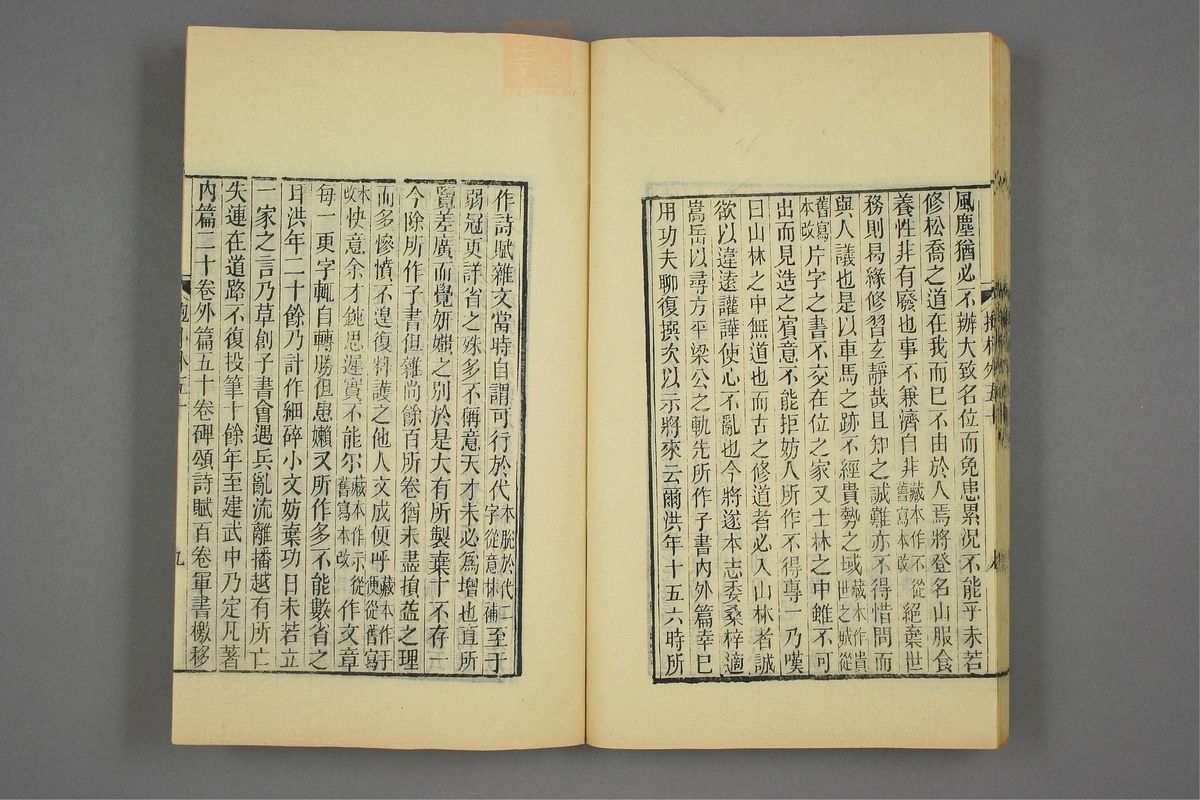 風塵猶必不辦大致名位而免患累況不能乎未若
修松喬之道在我而已不由於人焉將登名山服食
養性非有廢也事不兼濟自非藏本作不從舊寫本改絕棄世
務則曷緣修習玄靜哉且知之誠難亦不得惜問而
與人議也是以車馬之跡不經貴勢之域藏本作貴世之域從
舊寫本改片字之書不交在位之家又士林之中雖不可
出而見造之賓意不能拒妨人所作不得專一乃嘆
曰山林之中無道也而古之修道者必入山林者誠
欲以違遠讙譁使心不亂也今將遂本志委桑梓適
嵩岳以尋方平梁公之軌先所作子書內外篇幸已
用功夫聊復撰次以示將來云爾洪年十五六時所
抱朴外五十
作詩賦雜文當時自謂可行於代本脫於代二字從意林補至于
弱冠更詳省之殊多不稱意天才未必為增也直所
覽差廣而覺妍媸之別於是大有所製棄十不存一
今除所作子書但雜尚餘百所卷猶未盡損益之理
而多慘憤不遑復料護之他人文成便呼藏本作手便從舊寫
本改快意余才鈍思遲實不能尔藏本作示從舊寫本改作文章
每一更字輒自轉勝但患嬾又所作多不能數省之
耳洪年二十餘乃計作細碎小文妨棄功日未若立
一家之言乃草創子書會遇兵亂流離播越有所亡
失連在道路不復投筆十餘年至建武中乃定凡著
內篇二十卷外篇五十卷碑頌詩賦百卷軍書檄移
九